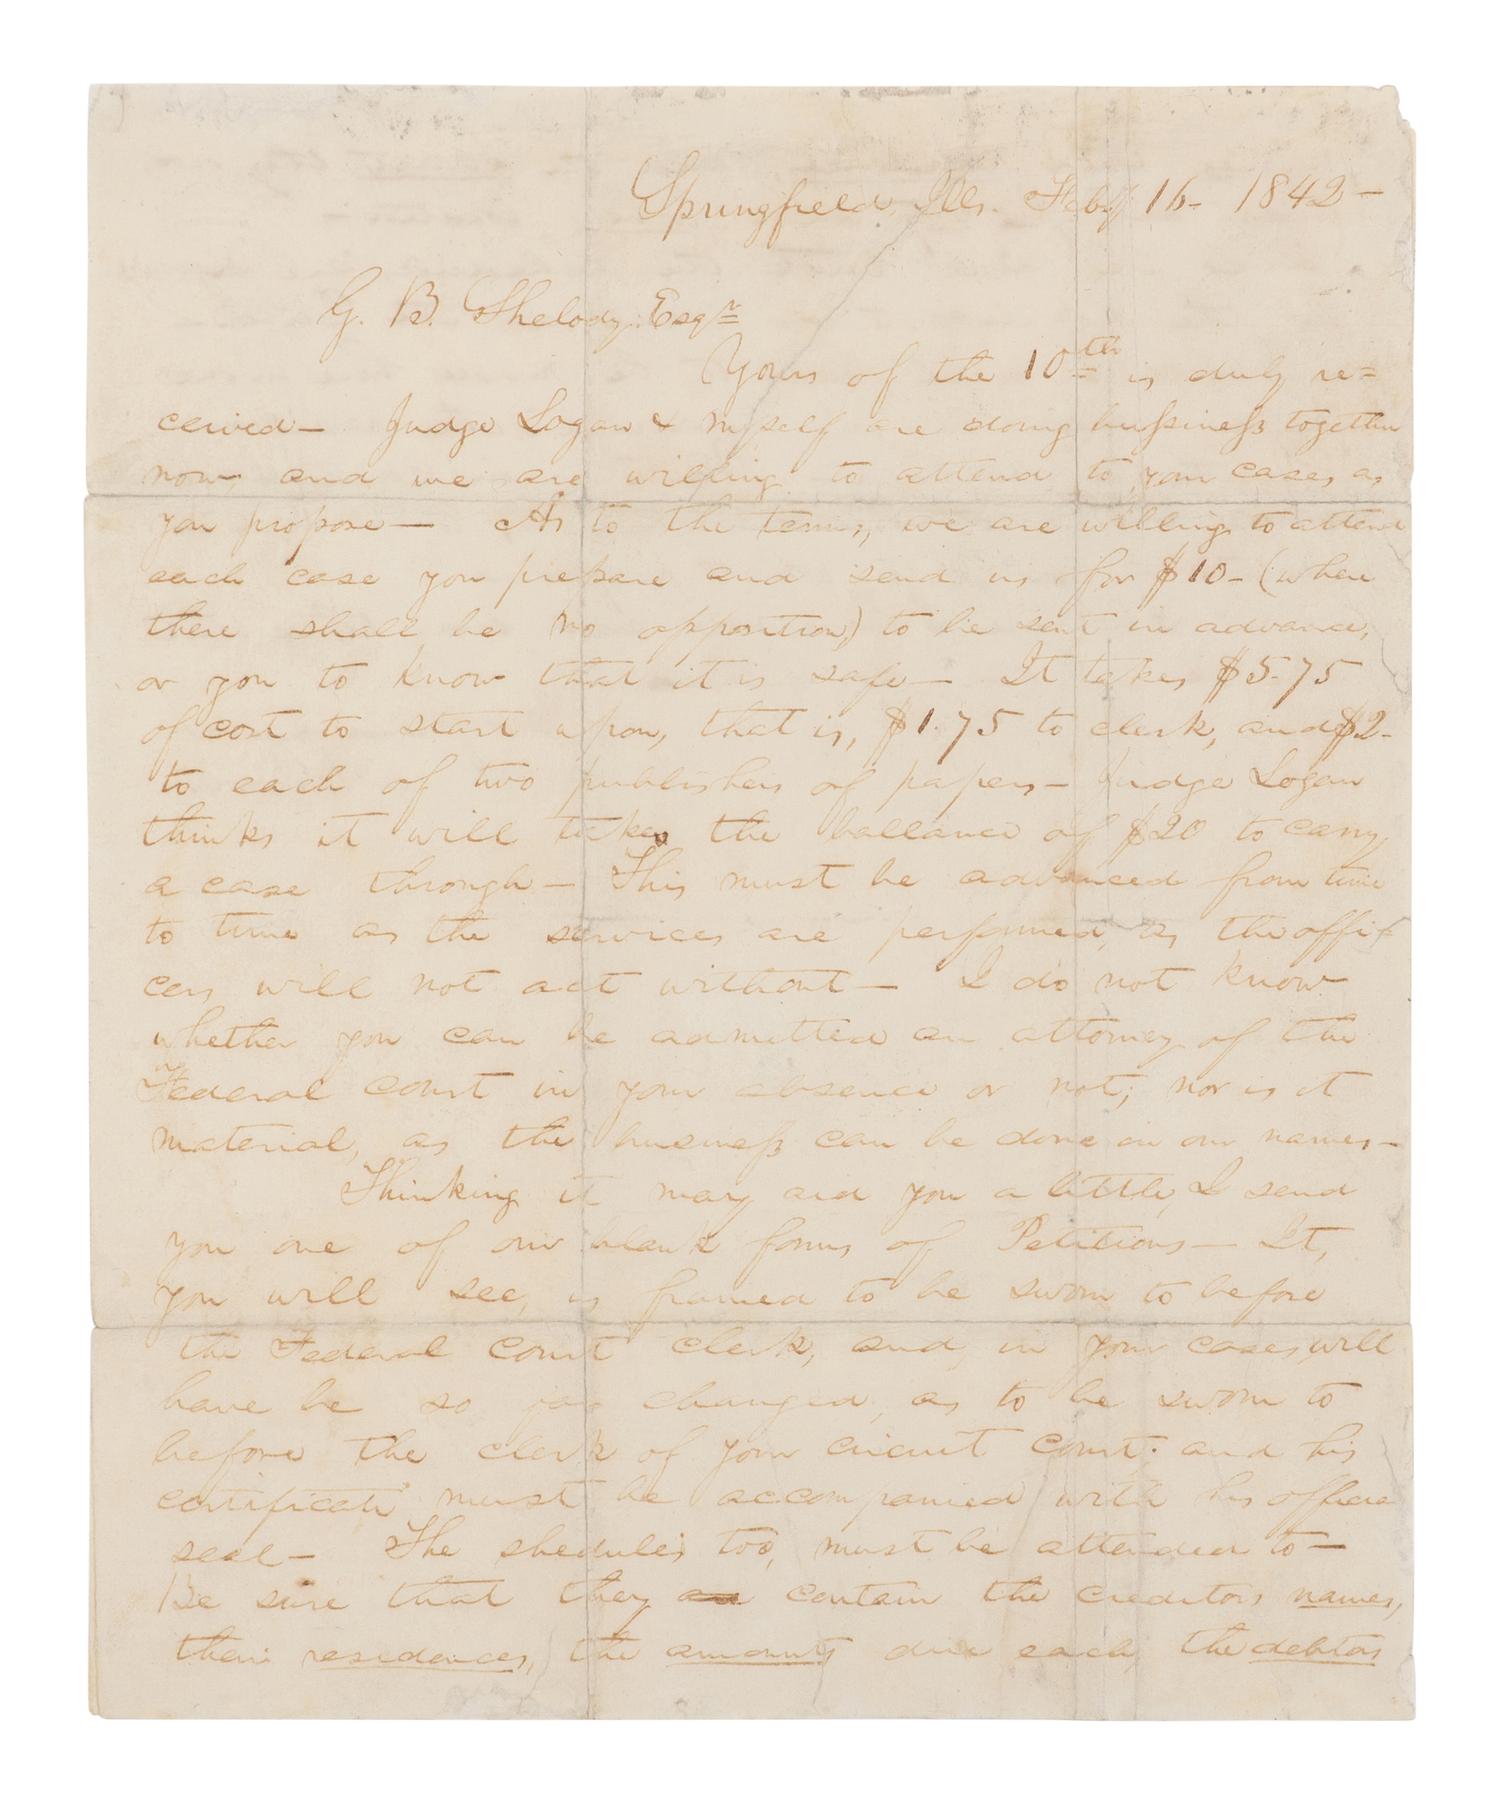 Springfield, Ills. Feby 16- 1842-
G. B. Shelady, Esqr
Yours of the 10th is duly re=
ceived- Judge Logan & myself are doing business together
now, and we are willing to attend to your cases as
you propose- As to the terms, we are willing to attend
each case you prepare and send us for $10- (when
there shall be no opposition) to be sent in advance,
or you to know that it is safe- It takes $5-75
of cost to start upon, that is, $1.75 to clerk, and $2-
to each of two publishers of papers- Judge Logan
thinks it will take the ballance of $20 to carry
a case through- This must be advanced from time
to time as the services are performed, as the offi=
cers will not act without- I do not know
whether you can be admitted an attorney of the
Federal court in your absence or not; nor is it
material, as the business can be done in our names-
Thinking it may aid you a little, I send
you one of our blank forms of Petitions- It,
you will see, is framed to be sworn to before
the Federal court clerk, and, in your cases, will
have be so far changed, as to be sworn to
before the clerk of your circuit court; and his
certificate must be accompanied with his official
seal- The shedules too, must be attended to-
Be sure that they contain the creditors names,
their residences, the amounts due each, the debtors